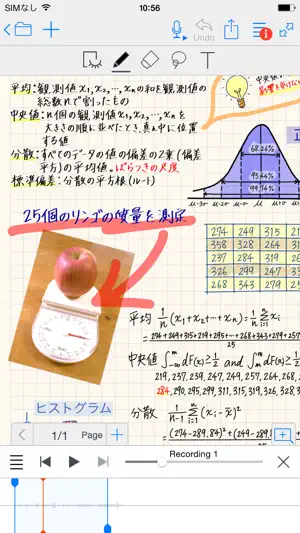 SIMなし
10:56
Undo
1
T
平均：観測値x₁,x₂,…,xnの和を観測値の
総数nで割ったもの
中央値：n個の観測値x₁,x₂,…,xnを
大きさの順に並べたとき、真ん中に位置
する値
分散：すべてのデータの値の偏差の2乗(偏差
平方)の平均値。ばらつきの尺度
標準偏差：分散の平方根(ルート)
中央値：
68.26%
95.44%
99.74%
μ-3σ μ-2σ μ-σ μ
25個のリンゴの質量を測定
274 249 315
358 328 264
237 284 319
326 299 247
268 343 279
平均 1/n (x₁+x₂…+xn) = 1/n Σ xi
= 274+249+315+219+295+…+268+343+299+257
25
中央値 ∫ dF(x) ≥ 1/2 and ∫ dF(x) ≥ 1/2
219, 237, 239, 247, 249, 257, 264, 268,
284, 290, 295, 299, 311, 315, 319, 326, 328, 3
分散 1/n-1 Σ (xi-x̄)²
(274-289.84)²+(249-289.8
ヒストグラム
1/1 Page
Recording 1